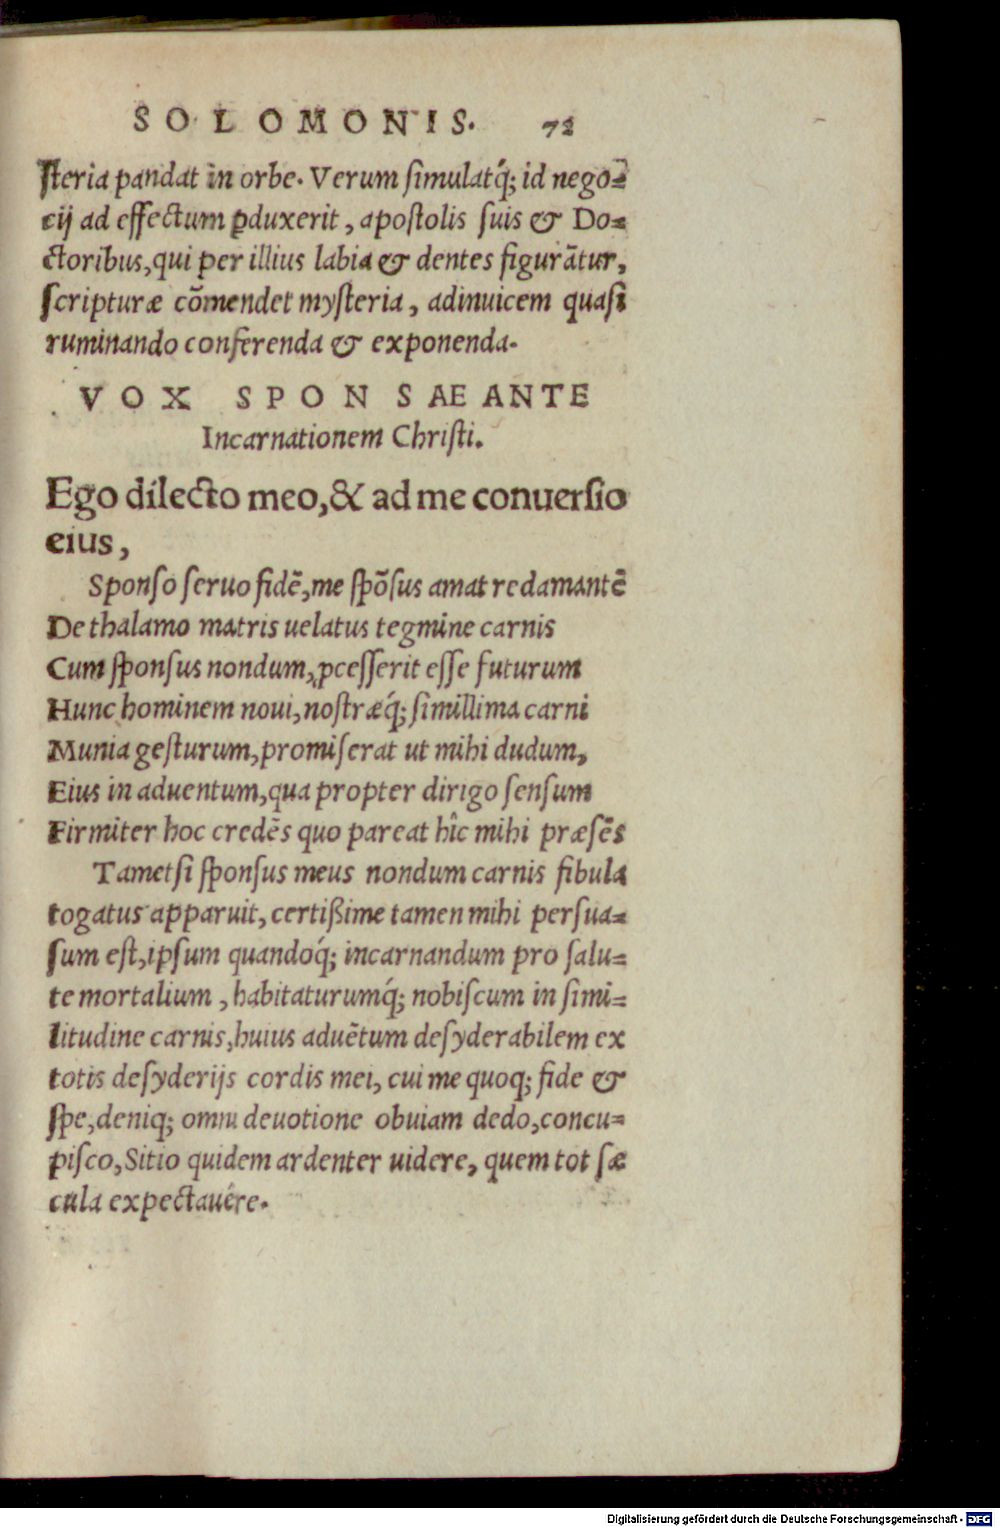 SOLOMONIS. 72
ſteria pandat in orbe. Verum ſimulatq́; id nego=
cij ad effectum ꝓduxerit, apoſtolis ſuis & Do=
ctoribus, qui per illius labia & dentes figurātur,
ſcripturæ cōmendet myſteria, adinuicem quaſi
ruminando conferenda & exponenda.
VOX SPONSAE ANTE
Incarnationem Chriſti.
Ego dilecto meo, & ad me conuerſio
eius,
Sponſo ſeruo fidē, me ſpōſus amat redamantē
De thalamo matris uelatus tegmine carnis
Cum ſponſus nondum, ꝓceſſerit eſſe futurum
Hunc hominem noui, noſtræq́; ſimillima carni
Munia geſturum, promiſerat ut mihi dudum,
Eius in aduentum, qua propter dirigo ſenſum
Firmiter hoc credēs quo pareat hîc mihi præſēs
Tametſi ſponſus meus nondum carnis fibula
togatus apparuit, certißime tamen mihi perſua=
ſum eſt, ipſum quandoq́; incarnandum pro ſalu=
te mortalium, habitaturumq́; nobiſcum in ſimi=
litudine carnis, huius aduētum deſyderabilem ex
totis deſyderijs cordis mei, cui me quoq; fide &
ſpe, deniq; omni deuotione obuiam dedo, concu=
piſco, Sitio quidem ardenter uidere, quem tot ſæ
cula expectauêre.
Digitalisierung gefördert durch die Deutsche Forschungsgemeinschaft - DFG